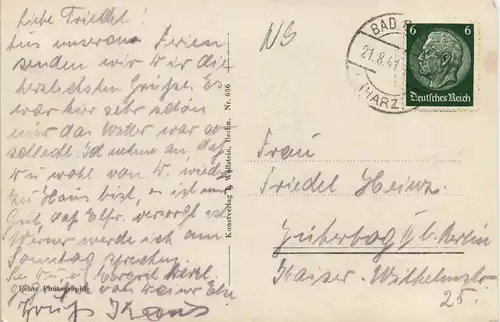 Liebe Friedel!
Aus unseren Ferien
senden wir dir die
herzlichsten Grüße. Es
war hier sehr schön
nur das Wetter war so
schlecht. Ich nehme an, daß
Du wohl von W. wieder
zu Haus bist, es ist nur
Gut daß Elfr. versorgt ist.
Werner werde ich am
Sonntag sprechen.
herzl.
von Deiner Else
Gruß
Echte Photographie
Kunstverlag Wollstein, Berlin. Nr. 636
NS
BAD
21.8.41
(HARZ)
6 6
Deutsches Reich
Frau
Friedel Heinz
Jüterbog b. Berlin
Kaiser-Wilhelmstr
25.